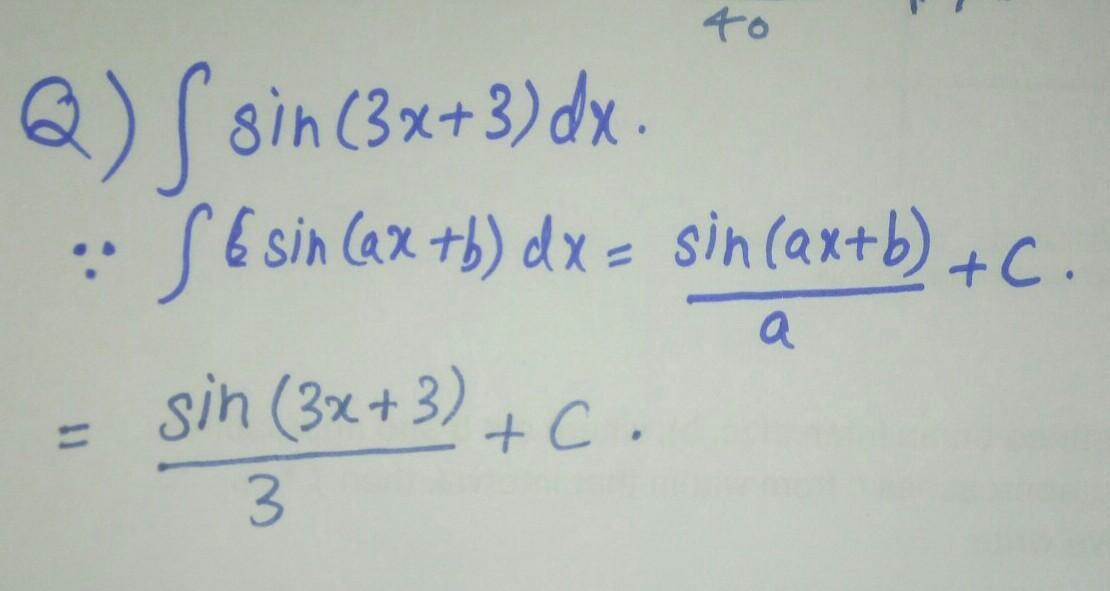 40
Q) ∫ sin(3x+3)dx.
∵ ∫ sin(ax+b) dx = sin(ax+b)/a + C.
= sin(3x+3)/3 + C.